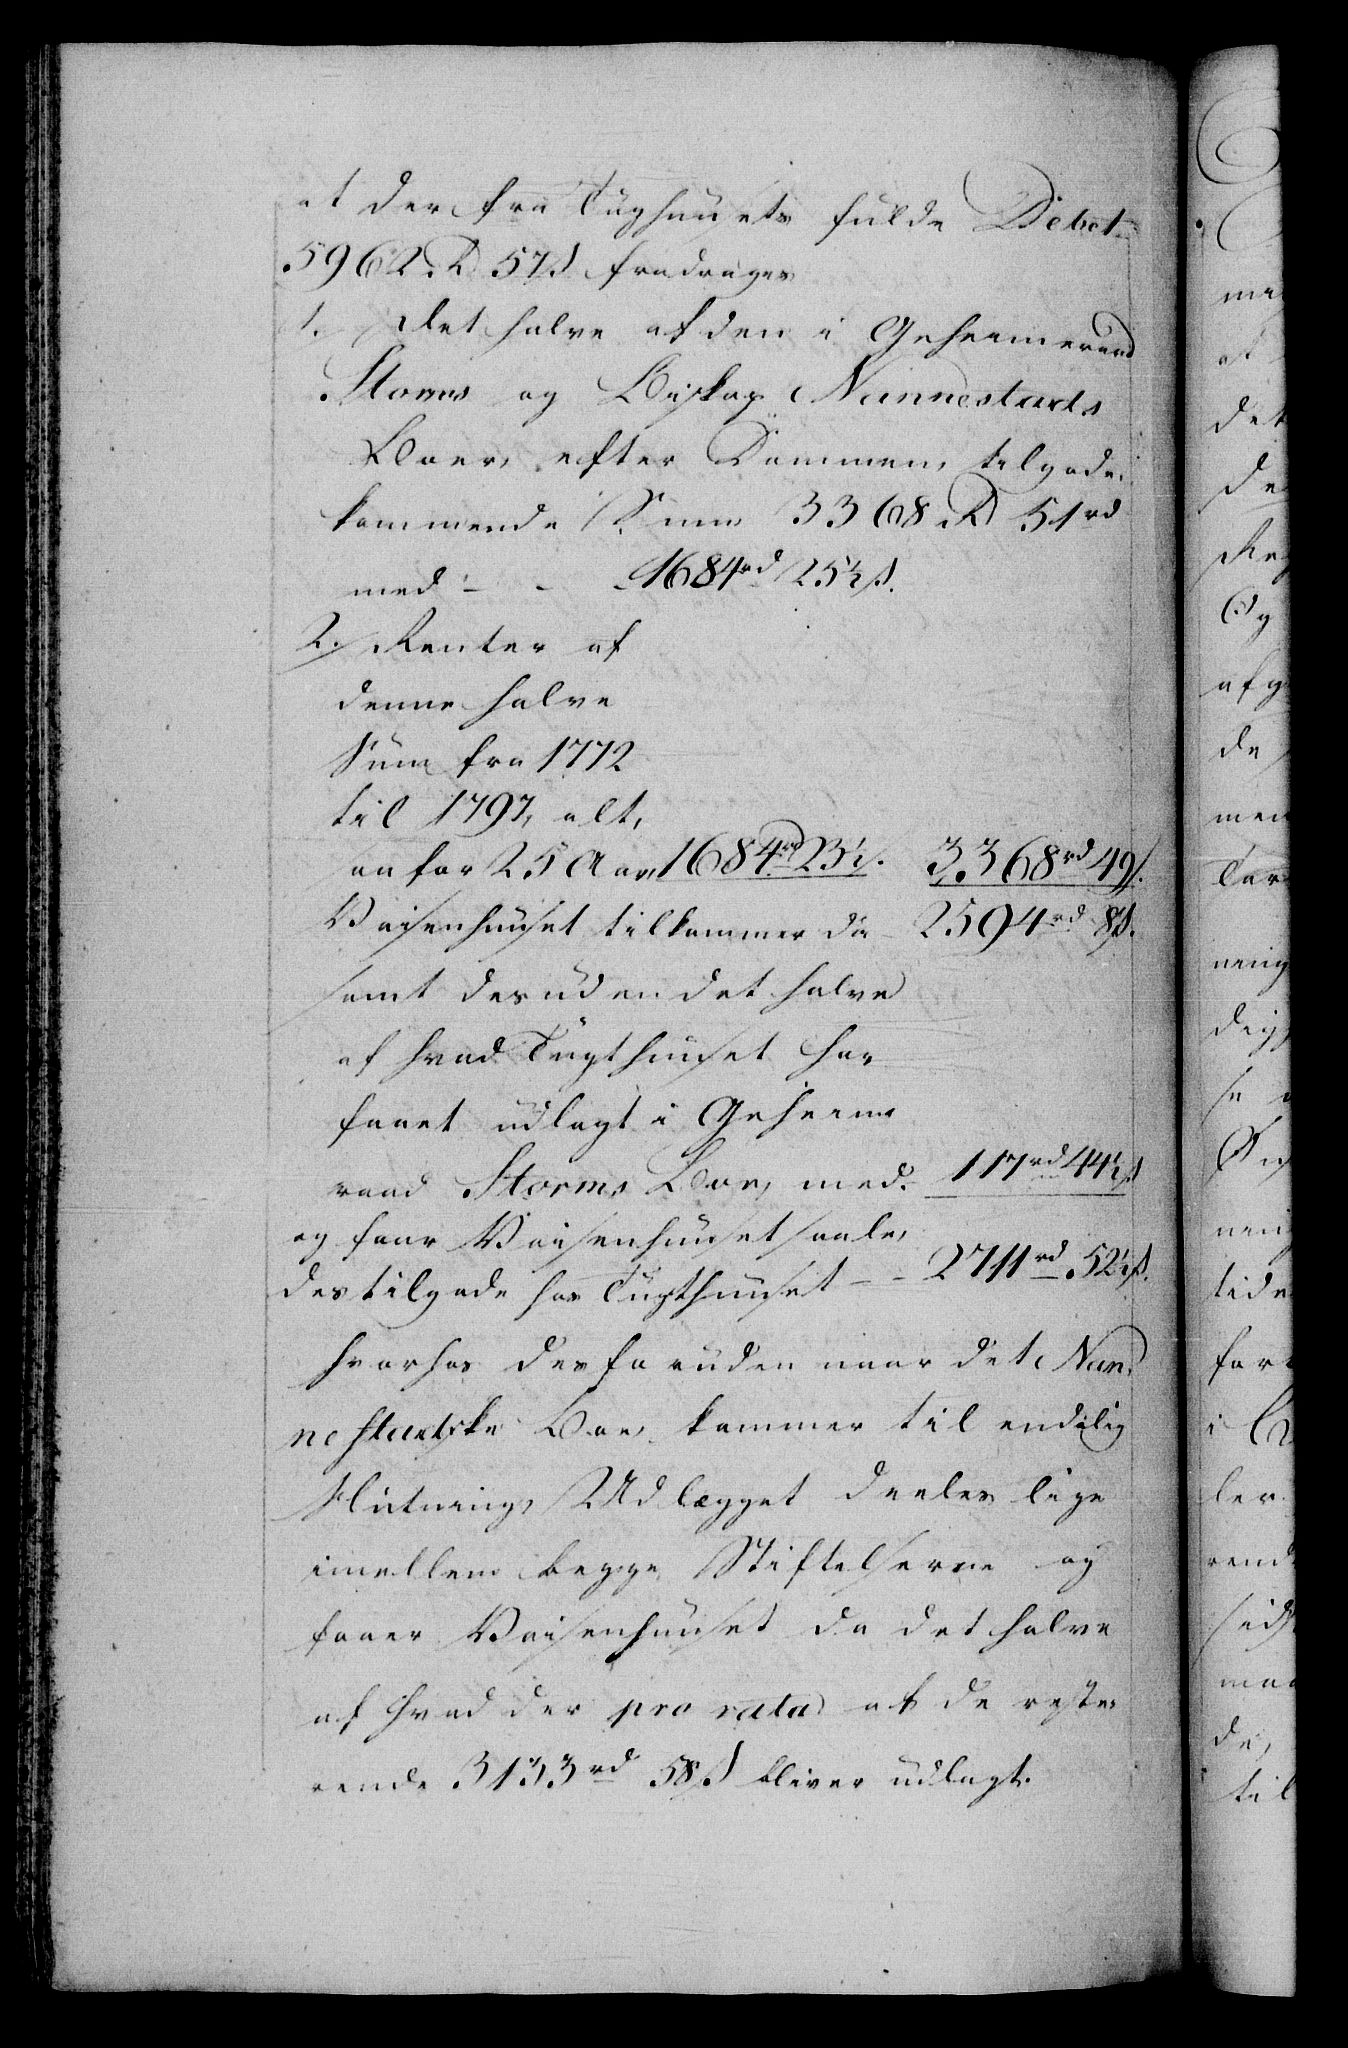 at der fra Tughuusets fulde Debet
5962 Rd 57 ß fradrages
1. Det halve af den i Geheimeraad
Storms og Biskop Nannestads
Boer, efter Dommen, tilgode-
kommende Sum 3368 Rd 51 rd
med - - 1684 rd 25½ ß.
2. Renter af
denne halve
Sum fra 1772
til 1797, alt,
saa for 25 Aar, 1684 rd 23½. 3368 rd 49 ß.
Vaisenhuuset tilkommer da 2594 rd 8 ß.
samt desuden det halve
af hvad Tugthuuset har
faaet udlagt i Geheime
raad Storms Boe, med. 117 rd 44½ ß
og faar Vaisenhuuset saale,
des tilgode hos Tugthuuset - - 2711 rd. 52½ ß.
hvorhos desforuden naar det Nan,
nestadske Boe, kommer til endelig
Slutning, Udlægget deeles lige
imellem begge Stiftelserne og
faaer Vaisenhuuset da det halve
af hvad der pro rata af de reste,
rende 3133 rd 58 ß bliver udlagt.